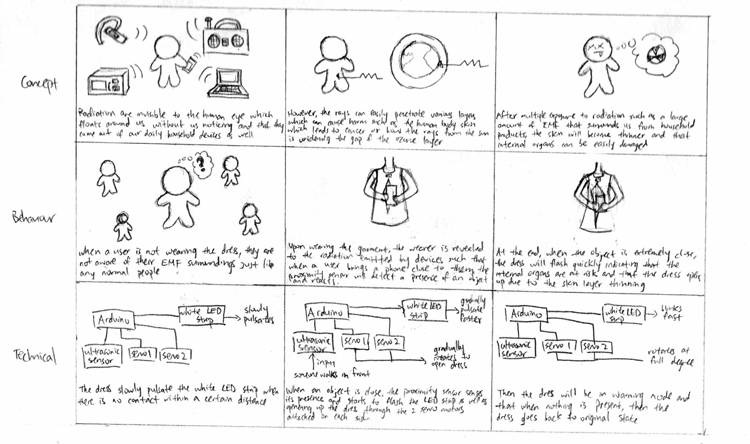 Concept
Radiation are invisible to the human eye which
floats around us without us noticing and that they
come out of our daily household devices as well
However, the rays can easily penetrate various layers
which can cause harm such as the human body skin
which leads to cancer or how the rays from the sun
is widening the gap of the ozone layer
After multiple exposure to radiation such as a large
amount of EMF that surrounds us from household
products, the skin will become thinner and that
internal organs can be easily damaged
Behaviour
?
when a user is not wearing the dress, they are
not aware of their EMF surroundings just like
any normal people
Upon wearing the garment, the wearer is revealed
to the radiation emitted by devices such that
when a user brings a phone close to the
proximity sensor will detect a presence of an object
and reacts.
At the end, when the object is extremely close,
the dress will flash quickly indicating that the
internal organs are at risk and that the dress opens
up due to the skin layer thinning
Technical
Arduino
white LED
strip
slowly
pulsates
ultrasonic
sensor
servo 1
servo 2
The dress slowly pulsate the white LED strip when
there is no contact within a certain distance
Arduino
white LED
strip
gradually
pulsate
faster
ultrasonic
sensor
servo 1
servo 2
input
someone walks in front
gradually
rotates to
open dress
When an object is close, the proximity sensor senses
its presence and starts to flash the LED strip as well as
opening up the dress through the 2 servo motors
attached on each side
Arduino
white LED
strip
blinks
fast
ultrasonic
sensor
servo 1
servo 2
rotates at
full degree
Then the dress will be in warning mode and
that when nothing is present, then the
dress goes back to original state